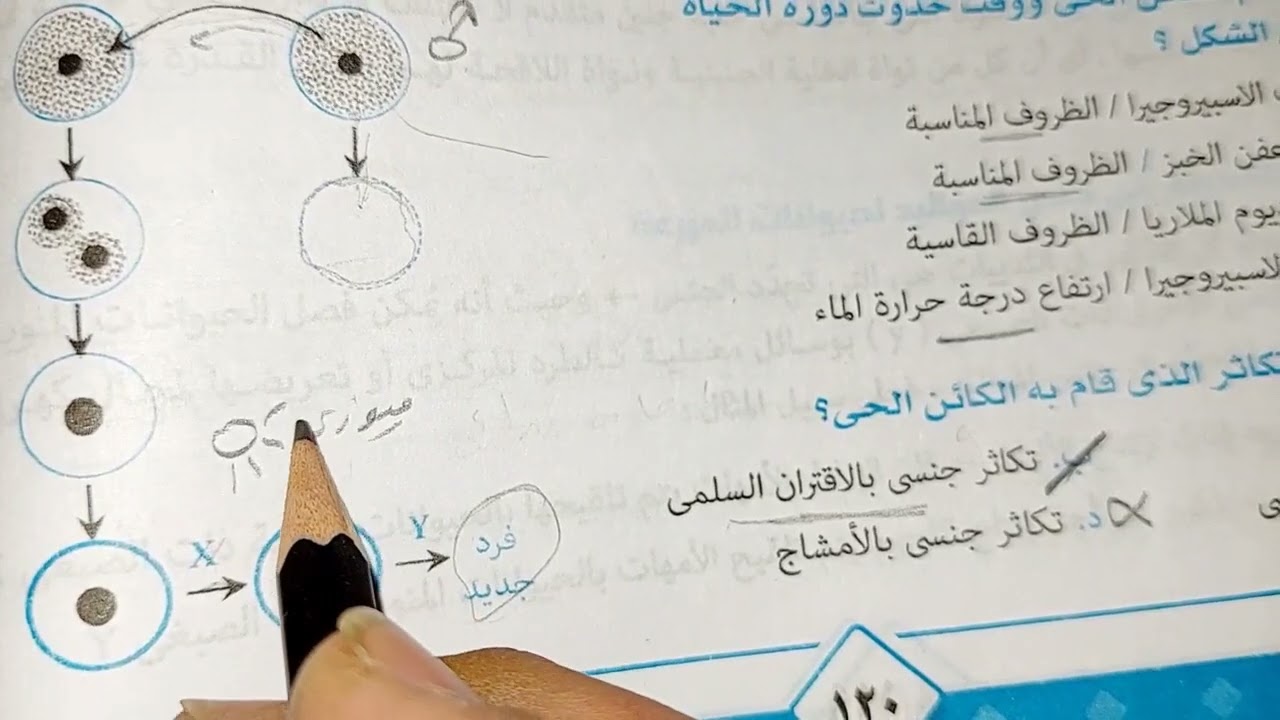 الحى ووقت حدوث دورة الحياة
الشكل ؟
الاسبيروجيرا / الظروف المناسبة
عفن الخبز / الظروف المناسبة
يوم الملاريا / الظروف القاسية
لاسبيروجيرا / ارتفاع درجة حرارة الماء
تكاثر الذى قام به الكائن الحى ؟
ب. تكاثر جنسى بالاقتران السلمى
د. تكاثر جنسى بالأمشاج
ميوزى
X
Y
فرد
جديد
١٢٠